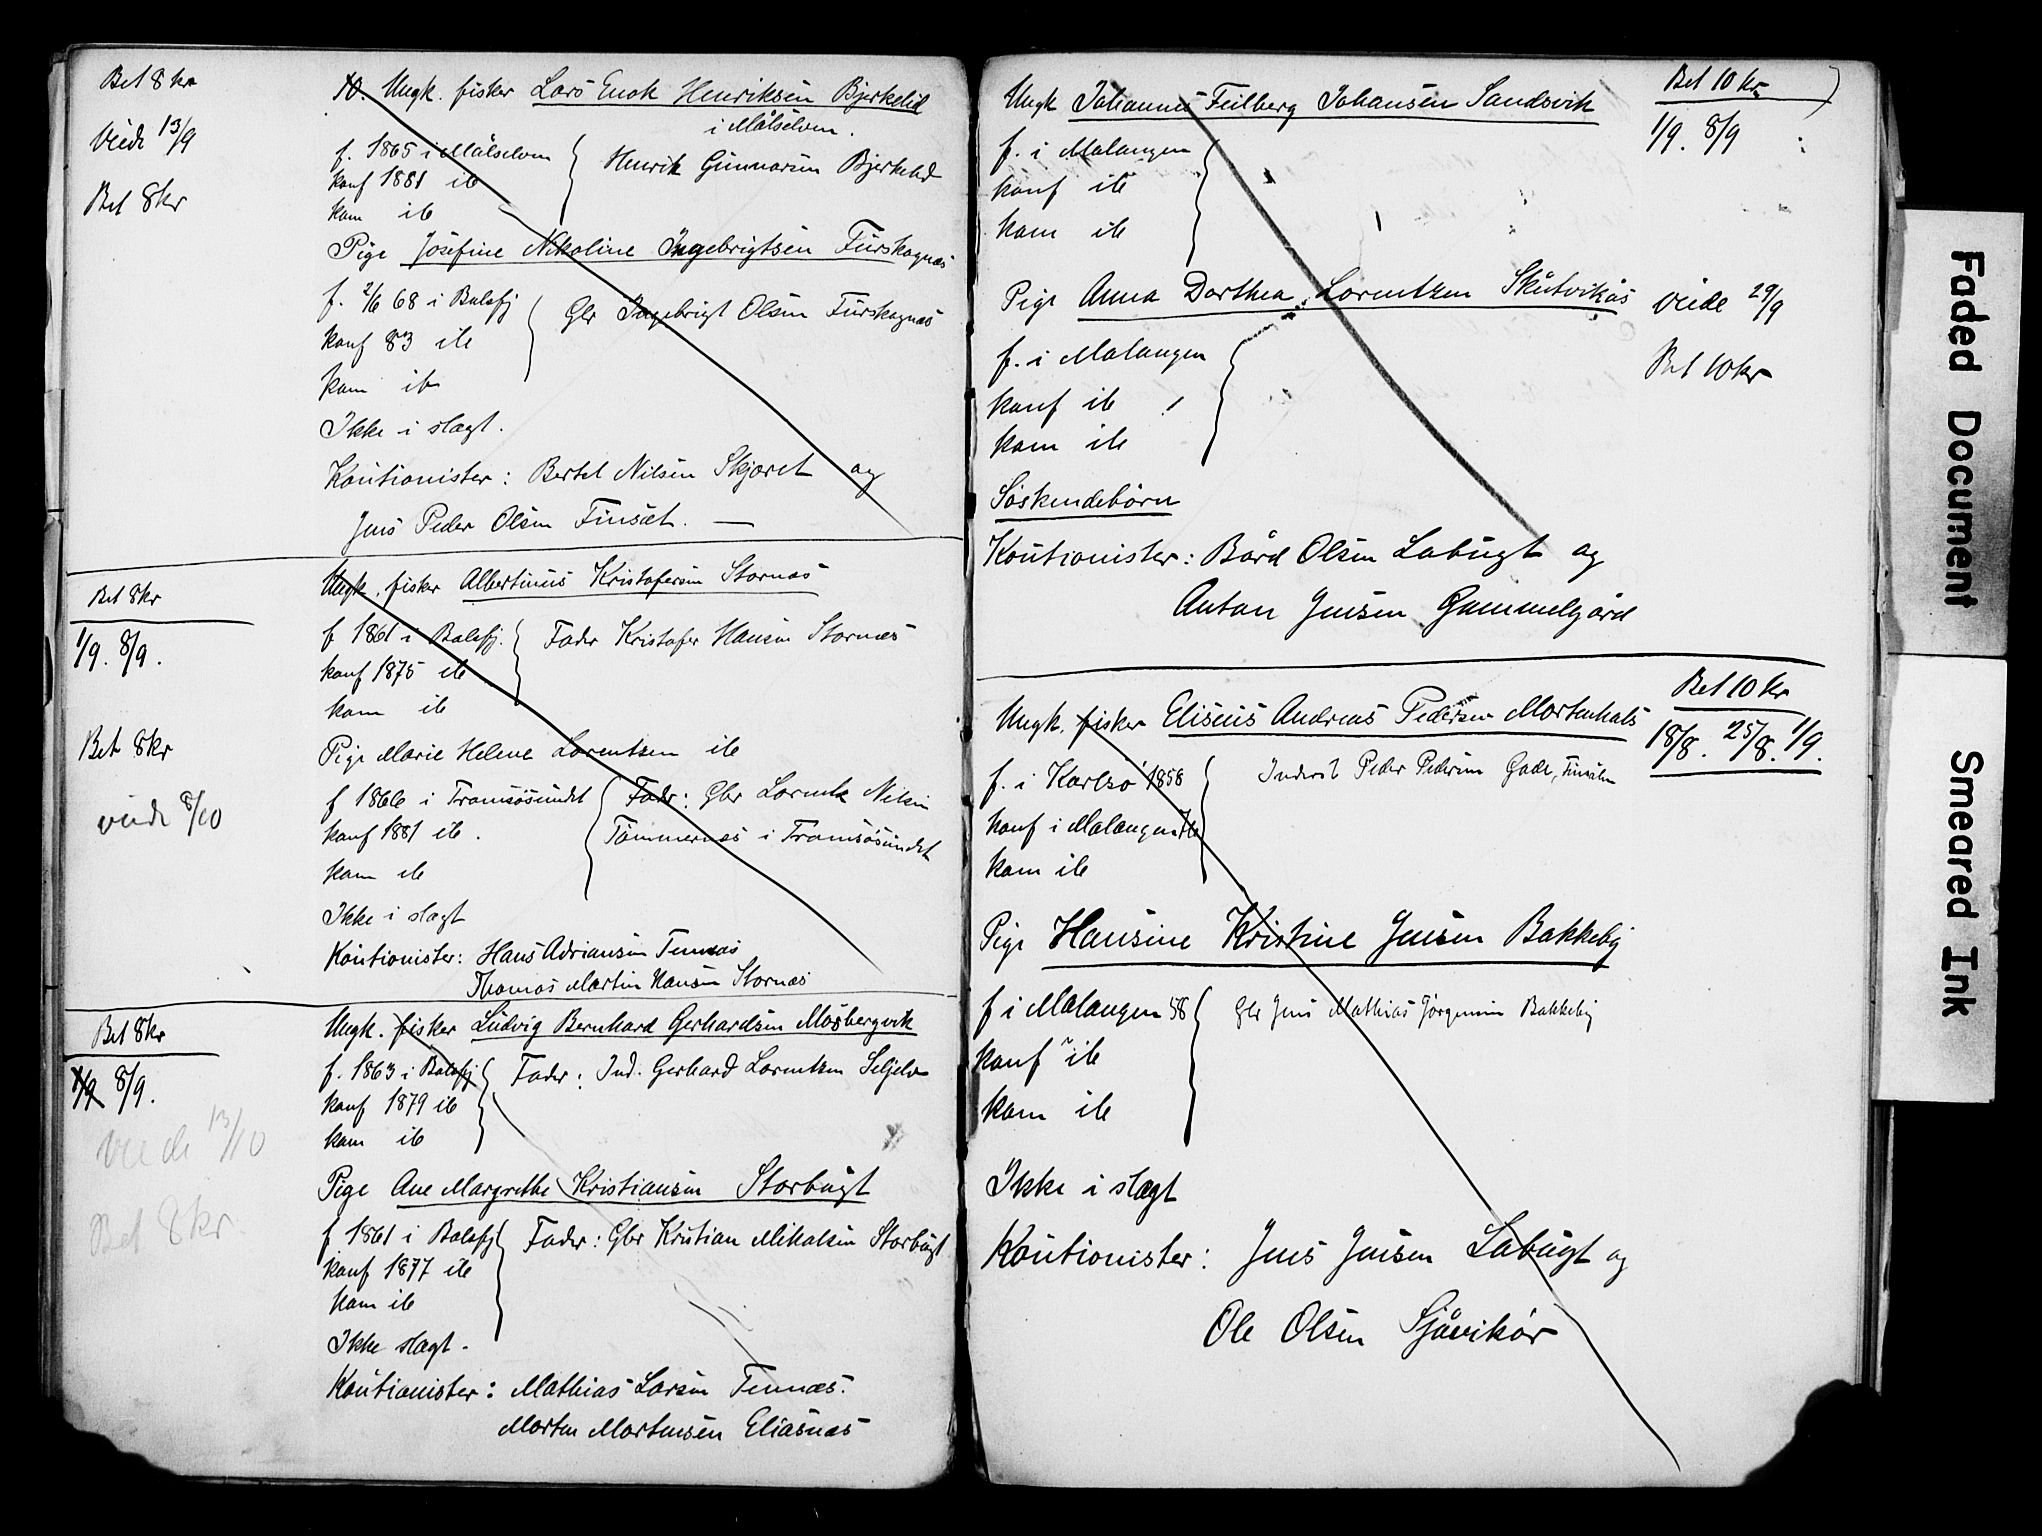 Bet 8 kr
Viede 13/9
Bet 8 kr
10. Ungk. fisker Lars Enok Henriksen Bjerkelid
i Målselven.
f. 1865 i Målselven
konf 1881 ib
kom ib
Henrik Gunnarsen Bjerkelid
Pige Josefine Nikoline Ingebrigtsen Furskognæs
f. 2/6 68 i Balsfj
konf 83 ib
kom ib
Gbr Ingebrigt Olsen Furskognæs
Ikke i slægt.
Kautionister: Bertel Nilsen Skjæret og
Jens Peder Olsen Finsæt. —
Bet 8 kr
1/9. 8/9.
Bet 8 kr
viede 8/10
Ungk. fisker Albertinus Kristofersen Stornæs
f 1861 i Balsfj.
konf 1875 ib
kom ib
Fader Kristofer Hansen Stornæs
Pige Marie Helene Lorentzen ib
f 1866 i Tromsøsundet
konf 1881 ib.
kom ib
Fader: Gbr Lorentz Nilsen
Tømmernæs i Tromsøsundet
Ikke i slægt
Kautionister: Hans Adriansen Tennæs
Thomas Martin Hansen Stornæs
Bet 8 kr
1/9 8/9.
Viede 13/10
Bet 8 kr.
Ungk. fisker Ludvig Bernhard Gerhardsen Måsbergvik
f. 1863 i Balsfj
konf 1879 ib
kom ib
Fader: Ind. Gerhard Lorentzen Seljelv
Pige Ane Margrethe Kristiansen Storbugt
f 1861 i Balsfj
konf 1877 ib
kom ib
Fader: Gbr Kristian Mikalsen Storbugt
Ikke slægt.
Kautionister: Mathias Larsen Tennæs.
Morten Mortensen Eliasnæs
Ungk Johannes Feilberg Johansen Sandsvik
Bet 10 kr
1/9. 8/9
f. i Malangen
konf ib
kom ib
Pige Anna Dorthea Lorentzen Skutvikås
Viede 29/9
Bet 10 kr
f. i Malangen
konf ib
kom ib
Søskendebørn
Kautionister: Bård Olsen Labugt og
Anton Jensen Gammelgård
Bet 10 kr
18/8. 25/8. 1/9.
Ungk. fisker Eliseus Andreas Pedersen Mortenhals
f. i Karlsø 1858
konf i Malangen
kom ib
Inderst Peder Pedersen
Pige Hansine Kristine Jensen Bakkeby
f i Malangen 58
konf ib
kom ib
Gbr Jens Mathias Jørgensen Bakkeby
Ikke i slægt
Kautionister: Jens Jensen Labugt og
Ole Olsen Sjåvikør
Faded Document
Smeared Ink